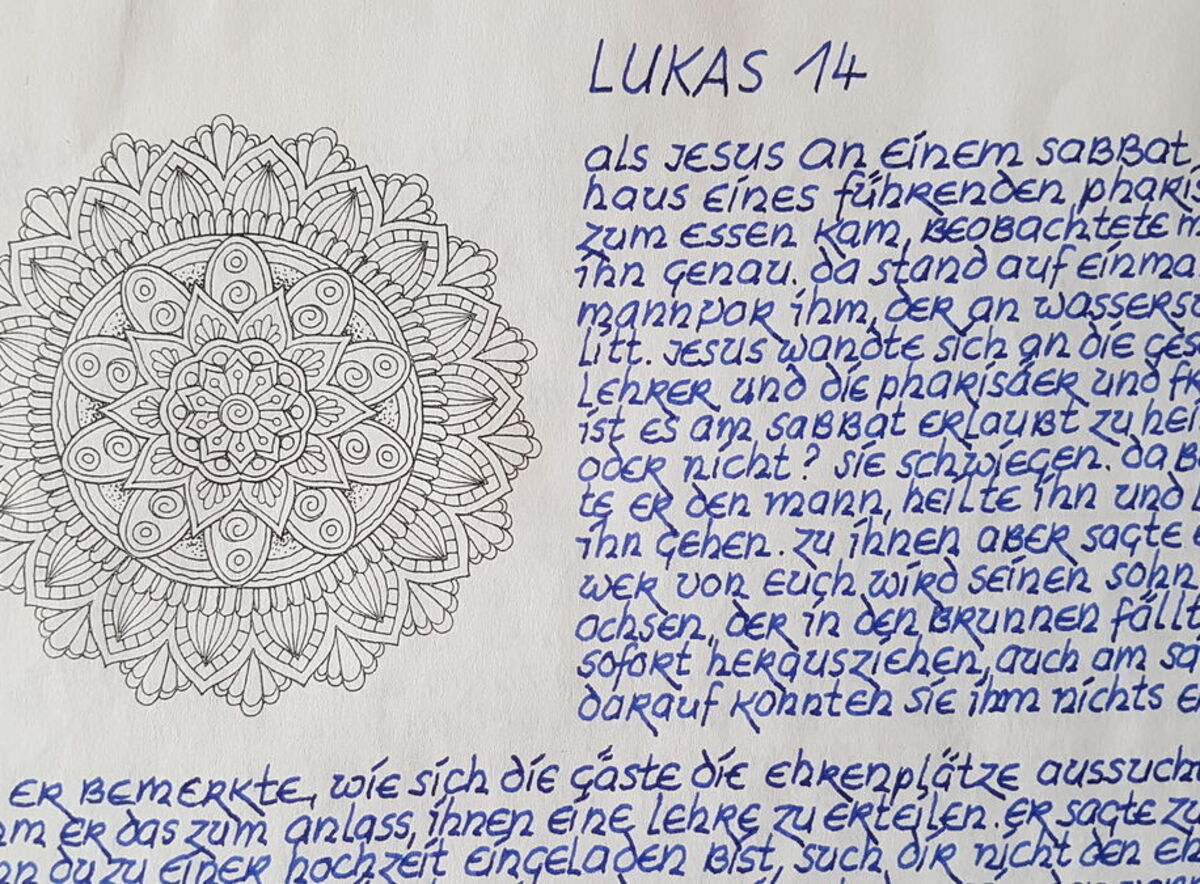 LUKAS 14
als JESUS an EinEM SaBBat
haus EinES führEnDEn pharis
zum ESSEn kam, BEOBachtEtE m
ihn GEnau. da stand auf Einma
mann vor ihm, DER an wassers
litt. JESUS wandtE sich an diE GES
LEhRER und diE pharisäER und fr
ist ES am saBBat ERlauBt zu hei
oder nicht? siE schwiEGEn. da BE
tE ER dEn mann, hEiltE ihn und
ihn GEhEn. zu ihnEn aBER saGtE
wER von Euch wird sEinEn sohn
ochsEn, dER in dEn BRunnEn fällt
sofort hERausziEhEn, auch am sa
daRauf konntEn siE ihm nichts E
ER BEMERktE, wiE sich diE GästE diE EhREnplätzE aussucht
hm ER das zum anlass, ihnEn EinE lEhRE zu ERtEilEn. ER saGtE zu
nn du zu EinER hochzEit EinGEladEn Bist, such diR nicht dEn Eh